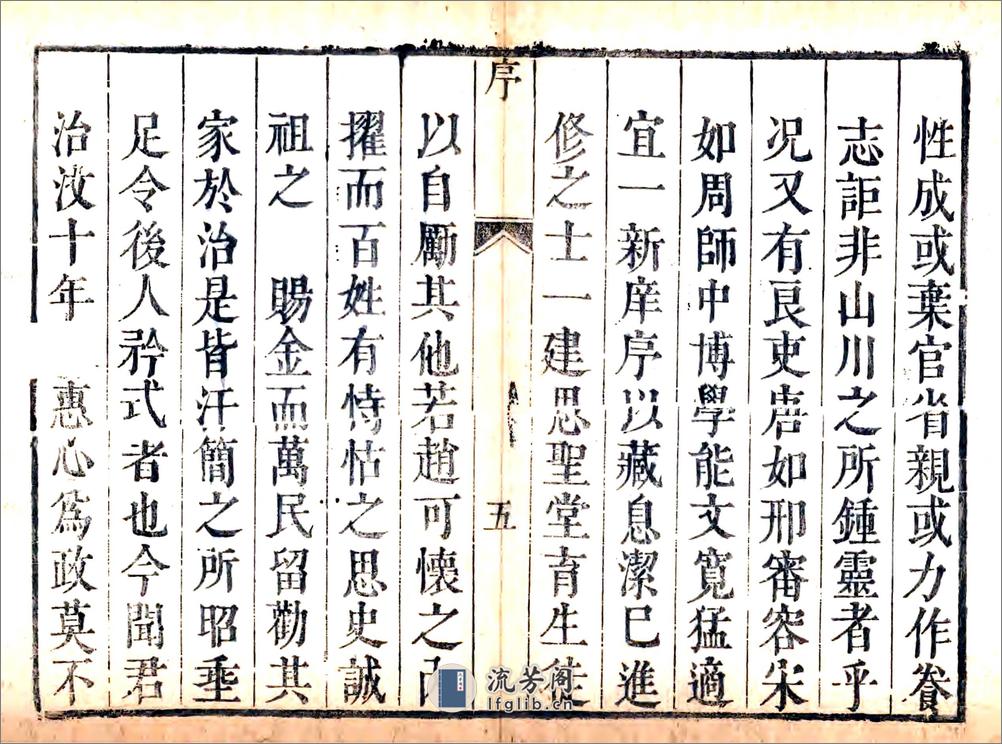 性成或棄官省親或力作養
志詎非山川之所鍾靈者乎
况又有良吏唐如邢審容宋
如周師中博學能文寬猛適
宜一新庠序以藏息潔巳進
修之士一建思聖堂育生徒
序
五
以自勵其他若趙可懷之
擢而百姓有恃怙之思史誠
祖之 賜金而萬民留勸其
家於治是皆汗簡之所昭垂
足令後人矜式者也今聞君
治汝十年 惠心爲政莫不
流芳阁
lfglib.cn